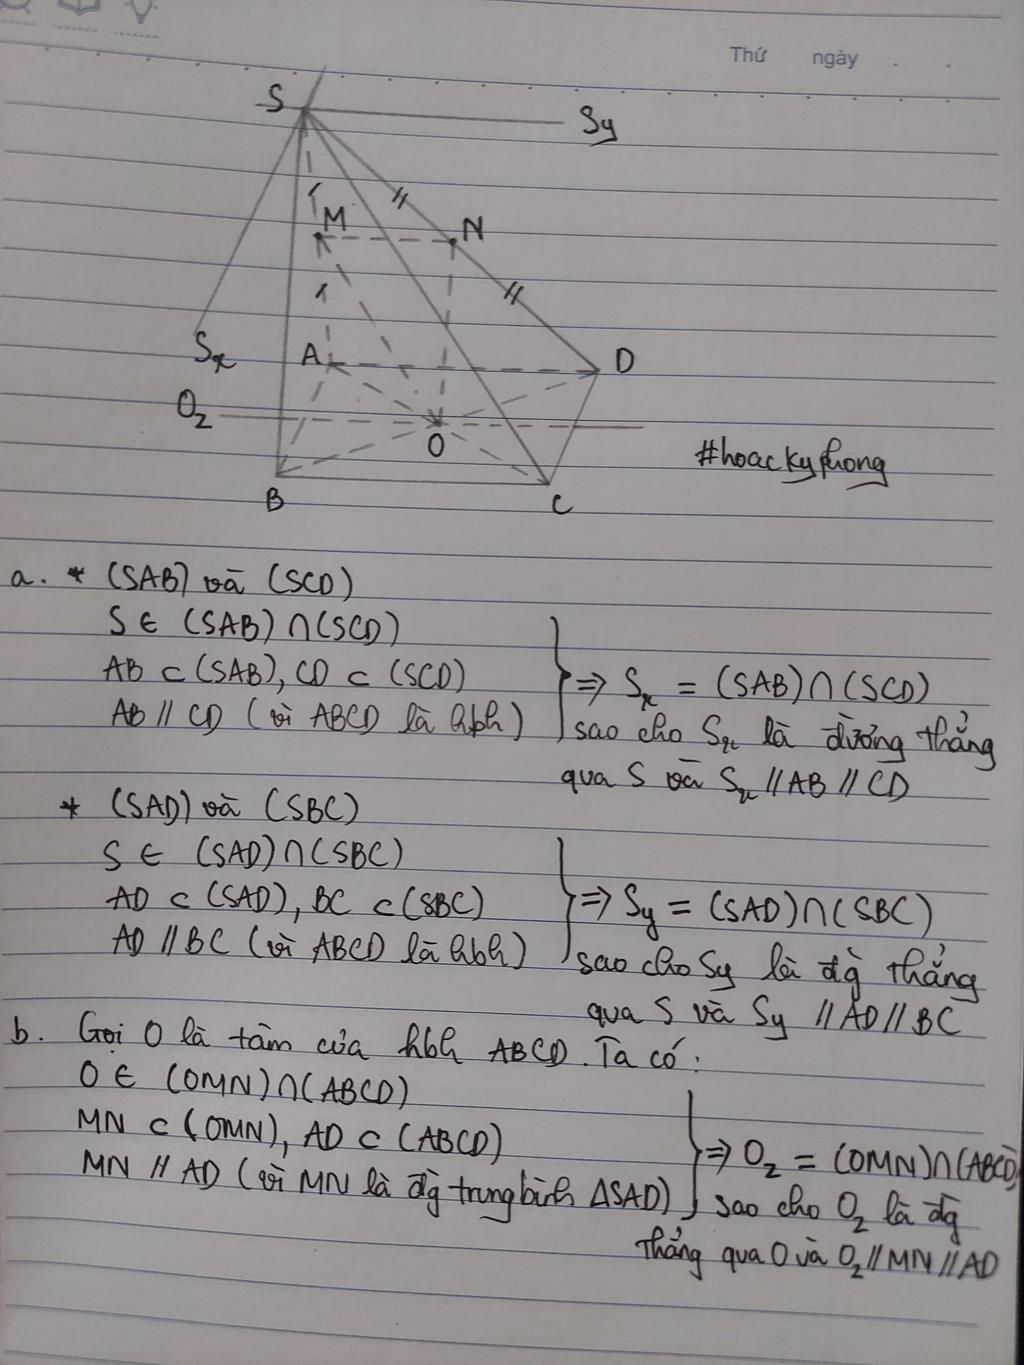 Thứ ngày . .
S
Sy
M
N
Sx
A
D
Oz
O
#hoackyphong
B
C
a. * (SAB) và (SCD)
S ∈ (SAB) ∩ (SCD)
AB ⊂ (SAB), CD ⊂ (SCD)
AB // CD (vì ABCD là hbh)
} => Sx = (SAB) ∩ (SCD)
sao cho Sx là đường thẳng
qua S và Sx // AB // CD
* (SAD) và (SBC)
S ∈ (SAD) ∩ (SBC)
AD ⊂ (SAD), BC ⊂ (SBC)
AD // BC (vì ABCD là hbh)
} => Sy = (SAD) ∩ (SBC)
sao cho Sy là đg thẳng
qua S và Sy // AD // BC
b. Gọi O là tâm của hbh ABCD. Ta có:
O ∈ (OMN) ∩ (ABCD)
MN ⊂ (OMN), AD ⊂ (ABCD)
MN // AD (vì MN là đg trung bình ΔSAD)
} => Oz = (OMN) ∩ (ABCD)
sao cho Oz là đg
thẳng qua O và Oz // MN // AD